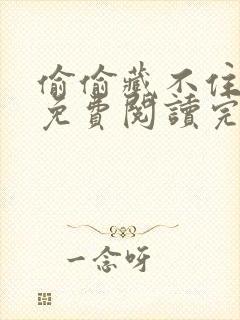 偷偷藏不住
免費閱讀完
一念呀